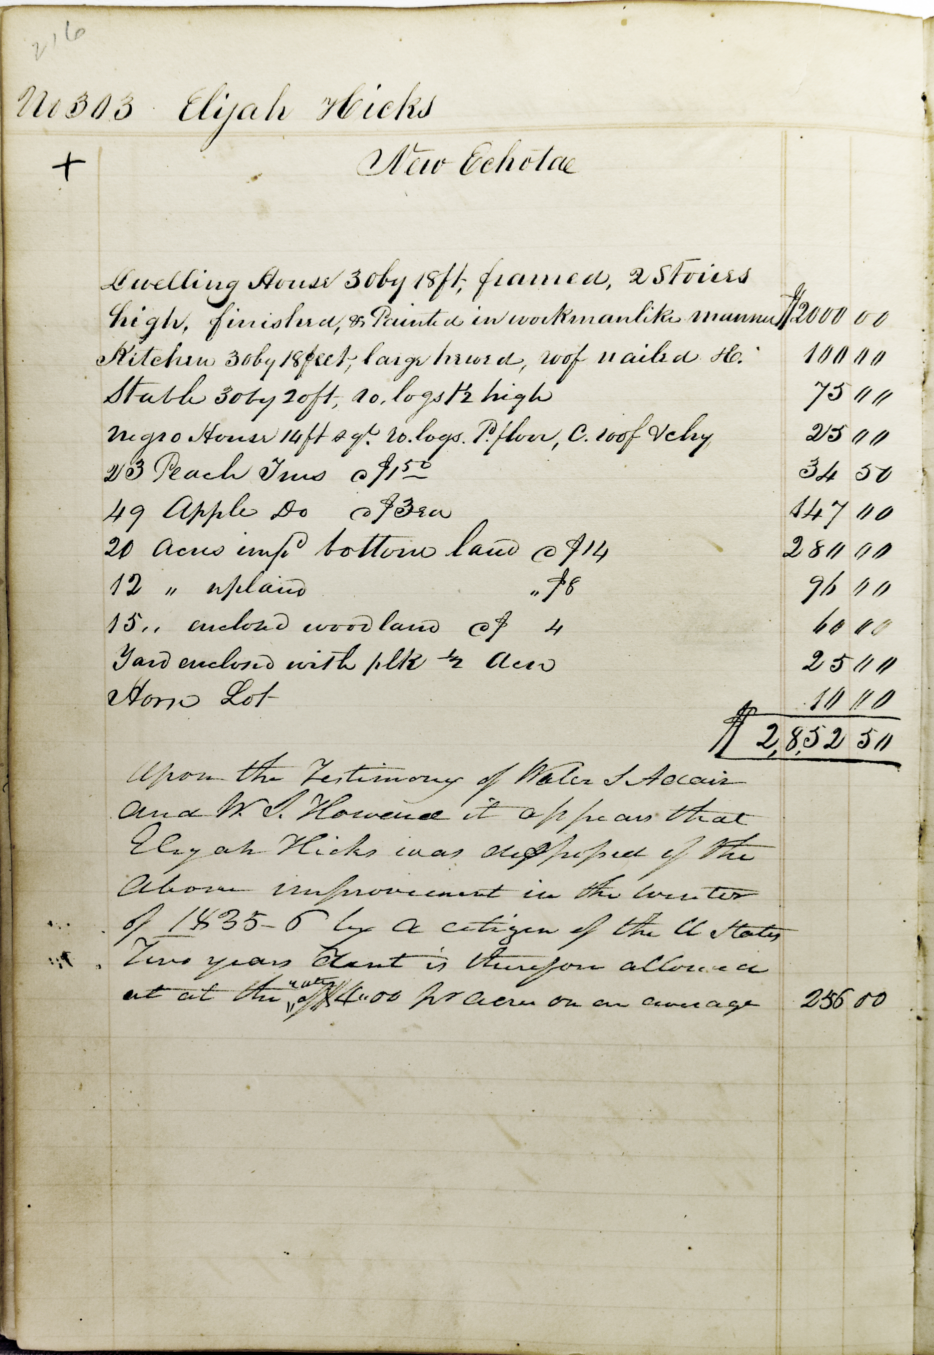 216
No 303 Elijah Hicks
+ New Echota
Dwelling House 30 by 18 ft, framed, 2 Stories
high, finished, & Painted in workmanlike manner $2000 00
Kitchen 30 by 18 feet, large hewed, roof nailed &c. 100 00
Stable 30 by 20 ft, ro. logs 1/2 high 75 00
Negro House 14 ft sqr. ro. logs. P. floor, C. roof & chy 25 00
23 Peach Trees @ $1 50 34 50
49 Apple Do @ $3 ea 147 00
20 Acres impd bottom land @ $14 280 00
12 " upland " $8 96 00
15 " enclosed woodland @ $ 4 60 00
Yard enclosed with plk 1/2 Acre 25 00
Horse Lot 10 00
$ 2,852 50
Upon the Testimony of Water S Adair
and W. S. it appears that
Elijah Hicks was dispossessed of the
above improvement in the winter
of 1835-6 by a citizen of the U States
Two years Rent is therefore allowed
at at the rate of $4.00 pr acre on an average 256 00